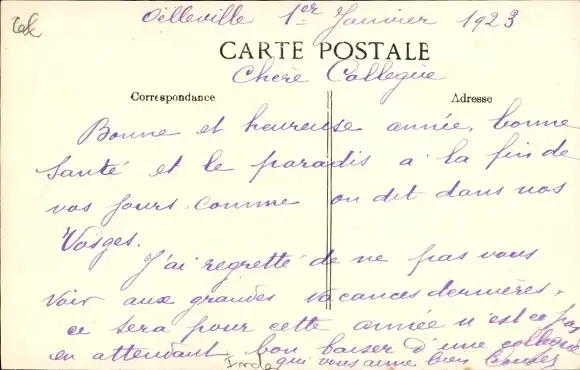 Oëlleville 1er Janvier 1923
CARTE POSTALE
Chère Collègue
Correspondance
Adresse
Bonne et heureuse année, bonne
santé et le paradis à la fin de
vos jours comme on dit dans nos
Vosges.
J'ai regretté de ne pas vous
voir aux grandes vacances dernières,
ce sera pour cette année n'est ce pas
en attendant bon baiser d'une collègue
qui vous aime bien